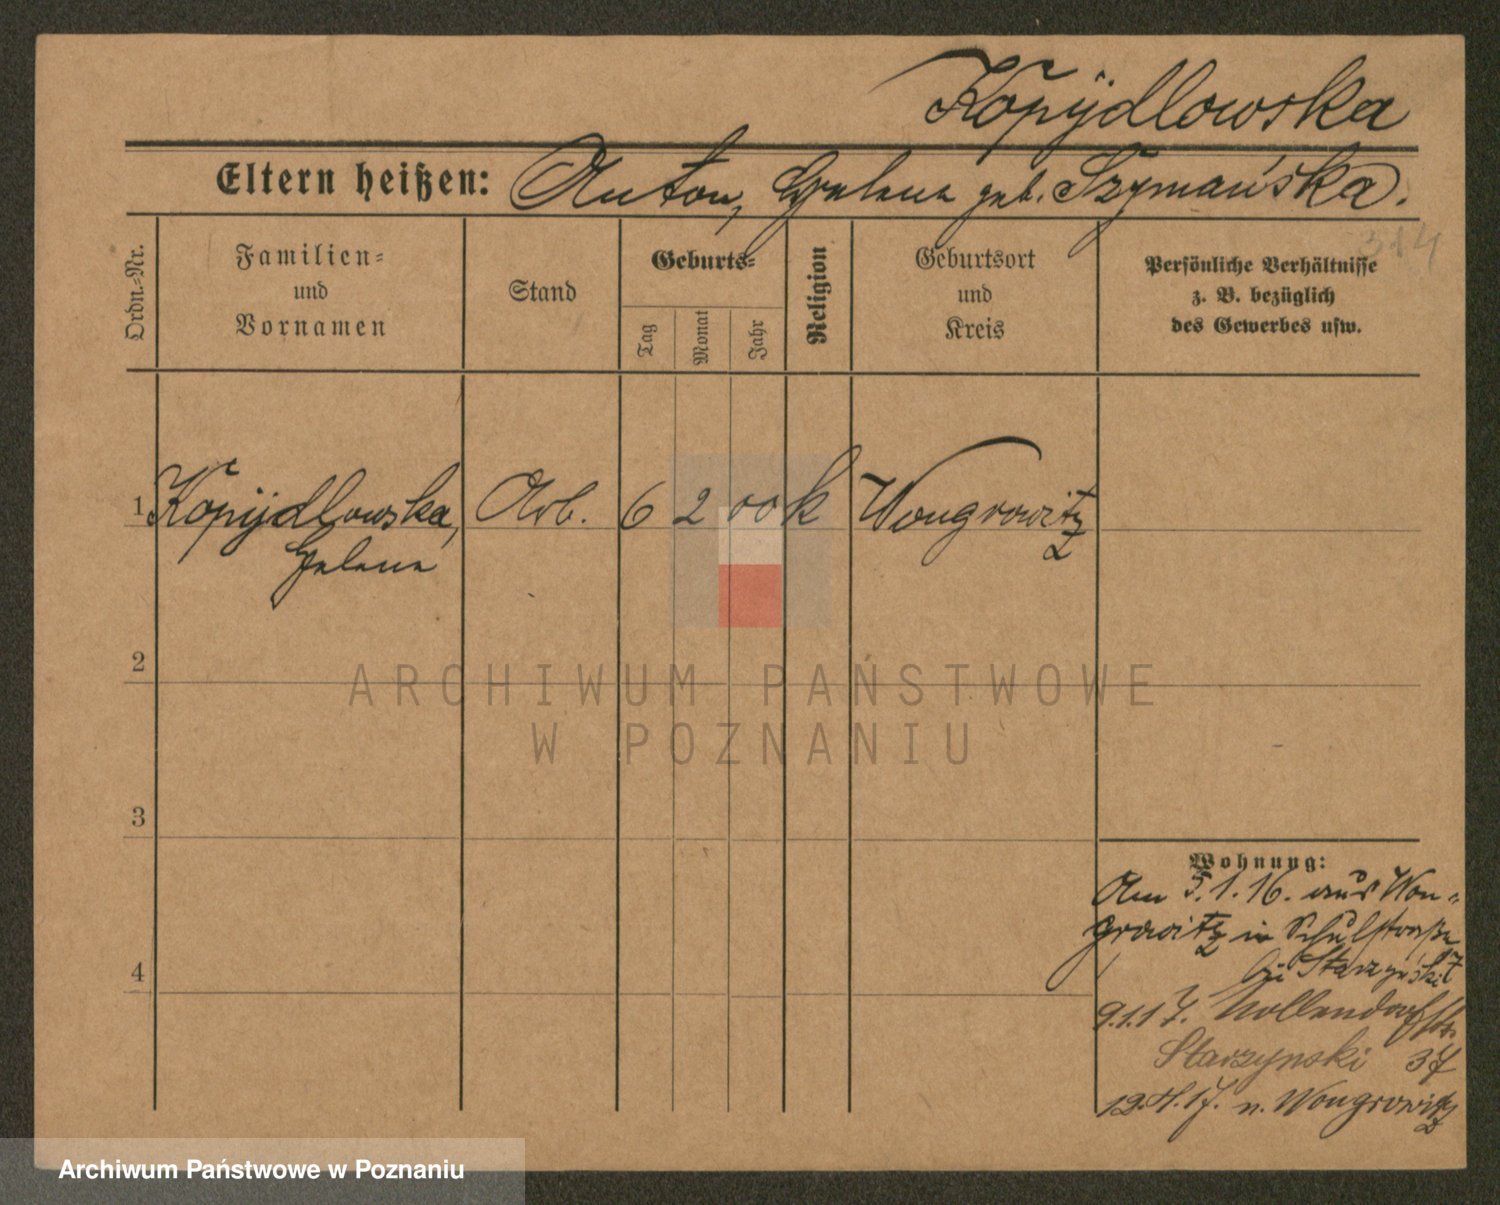 Kopijdlowska
Eltern heißen: Anton, Helene geb. Szymańska.
314
Ordn.=Nr.
Familien=
und
Vornamen
Stand
Geburts=
Tag
Monat
Jahr
Religion
Geburtsort
und
Kreis
Persönliche Verhältnisse
z. B. bezüglich
des Gewerbes usw.
1 Kopijdlowska, Arb. 6 2 00 k Wongrowitz
Helene
2
ARCHIWUM PAŃSTWOWE
W POZNANIU
3
Wohnung:
Am 5.1.16. aus Won=
growitz in Schulstraße
17
bei Starzynski
4
9.1.17. Nollendorfstr.
Starzynski 37
12.4.17. n. Wongrowitz
Archiwum Państwowe w Poznaniu